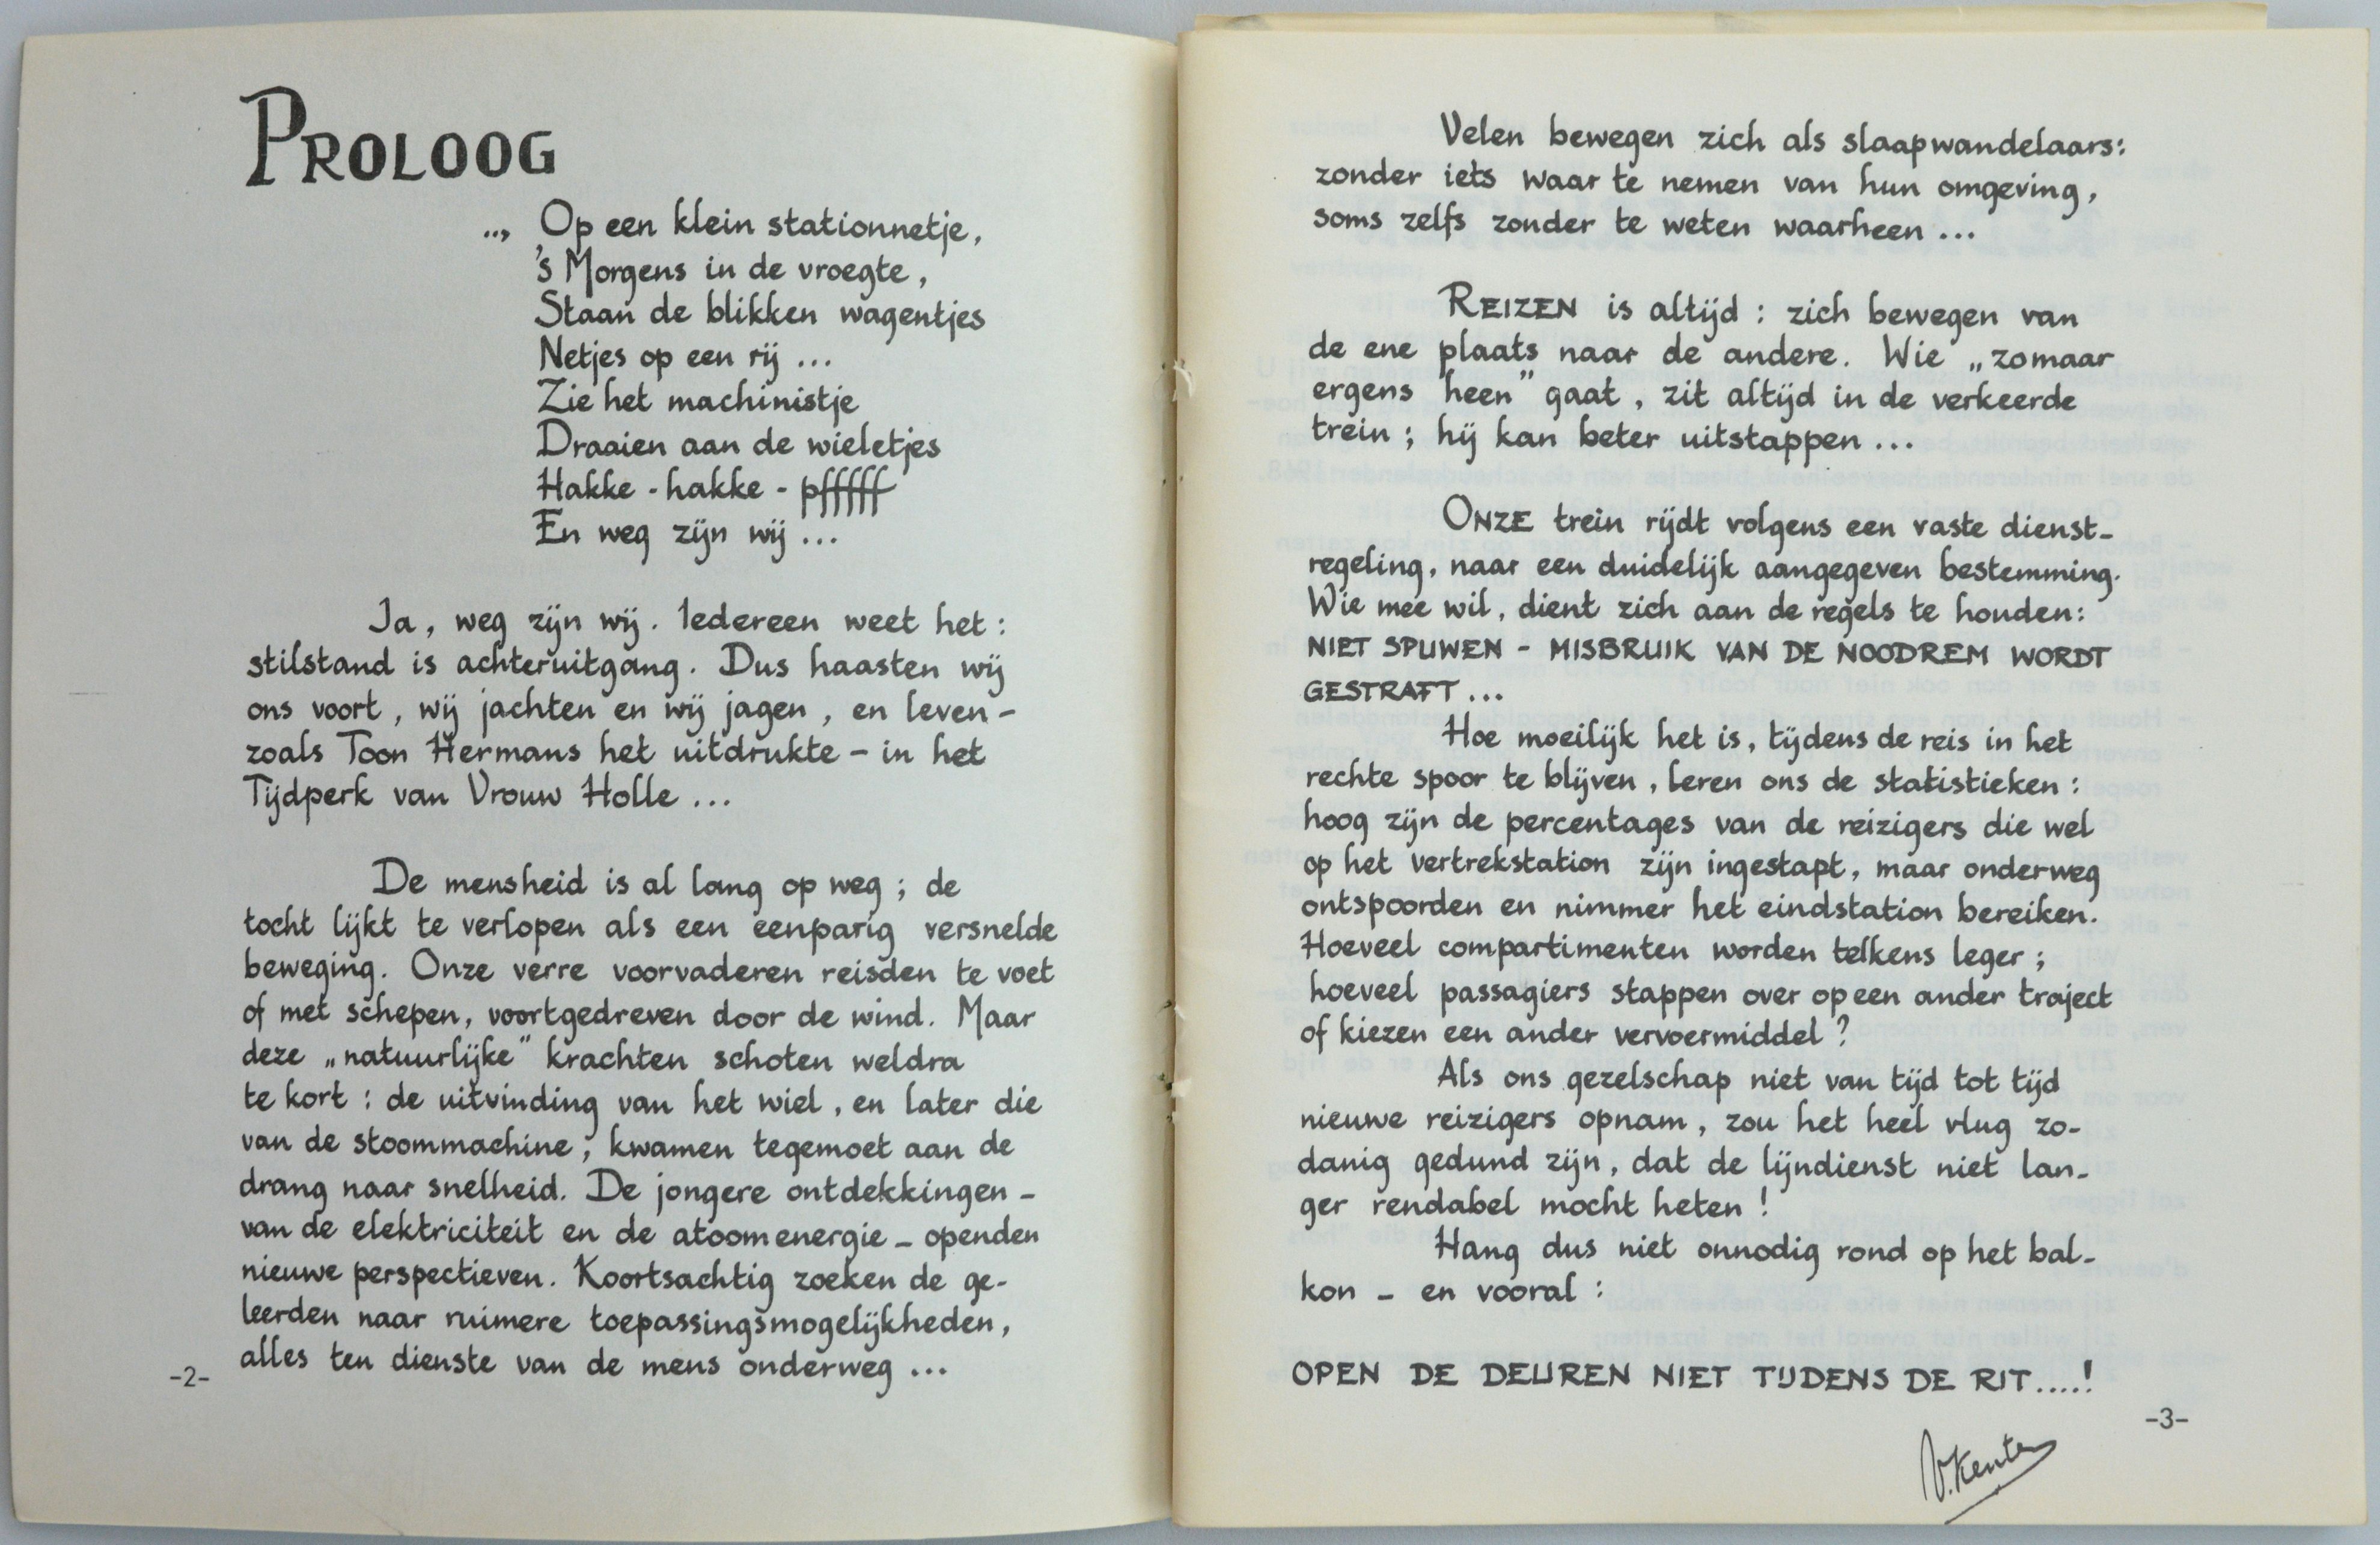 PROLOOG
..., Op een klein stationnetje,
's Morgens in de vroegte,
Staan de blikken wagentjes
Netjes op een rij ...
Zie het machinistje
Draaien aan de wieletjes
Hakke - hakke - pffffff
En weg zijn wij ...
Ja, weg zijn wij. Iedereen weet het:
stilstand is achteruitgang. Dus haasten wij
ons voort, wij jachten en wij jagen, en leven -
zoals Toon Hermans het uitdrukte - in het
Tijdperk van Vrouw Holle ...
De mensheid is al lang op weg; de
tocht lijkt te verlopen als een eenparig versnelde
beweging. Onze verre voorvaderen reisden te voet
of met schepen, voortgedreven door de wind. Maar
deze „natuurlijke" krachten schoten weldra
te kort: de uitvinding van het wiel, en later die
van de stoommachine, kwamen tegemoet aan de
drang naar snelheid. De jongere ontdekkingen -
van de elektriciteit en de atoomenergie - openden
nieuwe perspectieven. Koortsachtig zoeken de ge-
leerden naar ruimere toepassingsmogelijkheden,
alles ten dienste van de mens onderweg ...
-2-
Velen bewegen zich als slaapwandelaars:
zonder iets waar te nemen van hun omgeving,
soms zelfs zonder te weten waarheen ...
REIZEN is altijd: zich bewegen van
de ene plaats naar de andere. Wie „zomaar
ergens heen" gaat, zit altijd in de verkeerde
trein; hij kan beter uitstappen ...
ONZE trein rijdt volgens een vaste dienst-
regeling, naar een duidelijk aangegeven bestemming.
Wie mee wil, dient zich aan de regels te houden:
NIET SPUWEN - MISBRUIK VAN DE NOODREM WORDT
GESTRAFT ...
Hoe moeilijk het is, tijdens de reis in het
rechte spoor te blijven, leren ons de statistieken:
hoog zijn de percentages van de reizigers die wel
op het vertrekstation zijn ingestapt, maar onderweg
ontspoorden en nimmer het eindstation bereiken.
Hoeveel compartimenten worden telkens leger;
hoeveel passagiers stappen over op een ander traject
of kiezen een ander vervoermiddel?
Als ons gezelschap niet van tijd tot tijd
nieuwe reizigers opnam, zou het heel vlug zo-
danig gedund zijn, dat de lijndienst niet lan-
ger rendabel mocht heten!
Hang dus niet onnodig rond op het bal-
kon - en vooral:
OPEN DE DEUREN NIET TIJDENS DE RIT....!
-3-